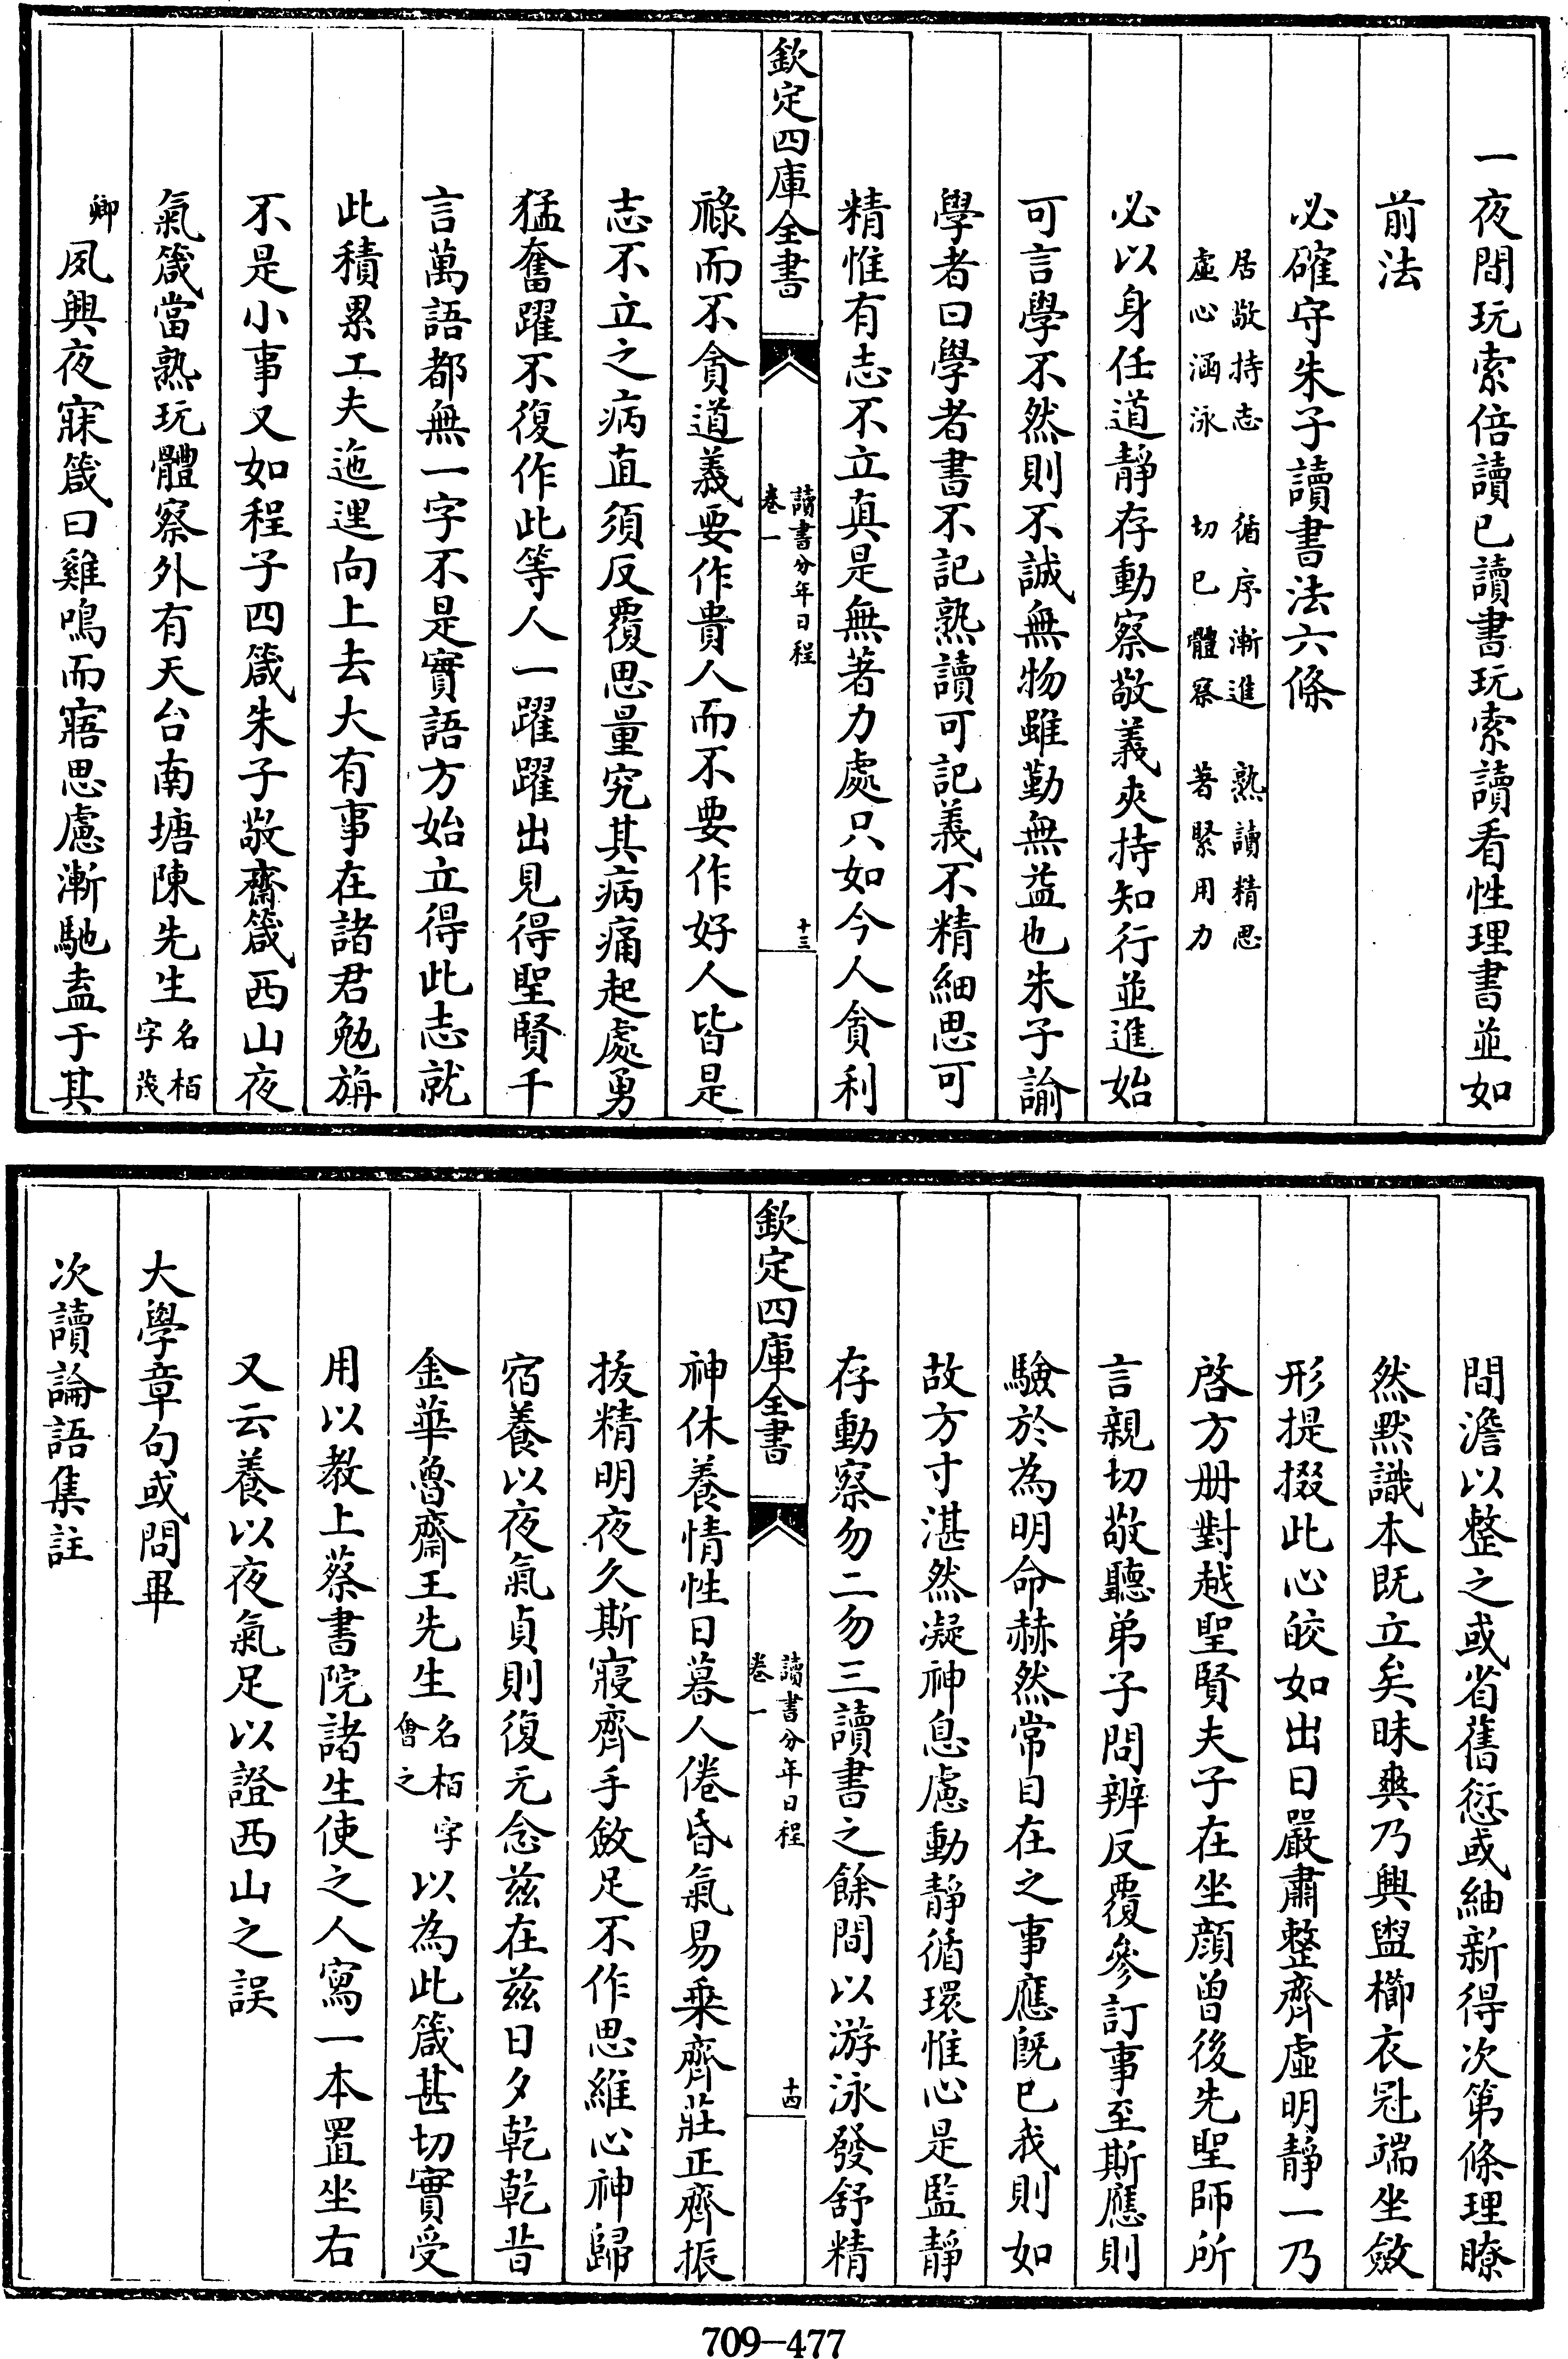 一夜間玩索倍讀已讀書玩索讀看性理書並如
前法
必確守朱子讀書法六條
居敬持志　循序漸進　熟讀精思
虛心涵泳　切已體察　著緊用力
必以身任道靜存動察敬義夾持知行並進始
可言學不然則不誠無物雖勤無益也朱子諭
學者曰學者書不記熟讀可記義不精細思可
精惟有志不立真是無著力處只如今人貪利
欽定四庫全書
讀書分年日程
卷一
十三
祿而不貪道義要作貴人而不要作好人皆是
志不立之病直須反覆思量究其病痛起處勇
猛奮躍不復作此等人一躍躍出見得聖賢千
言萬語都無一字不是實語方始立得此志就
此積累工夫迤邐向上去大有事在諸君勉旃
不是小事又如程子四箴朱子敬齋箴西山夜
氣箴當熟玩體察外有天台南塘陳先生名栢字茂
卿夙興夜寐箴曰雞鳴而寤思慮漸馳盍于其
間澹以整之或省舊愆或紬新得次第條理瞭
然默識本既立矣昧爽乃興盥櫛衣冠端坐斂
形提掇此心皎如出日嚴肅整齊虛明靜一乃
啓方册對越聖賢夫子在坐顔曾後先聖師所
言親切敬聽弟子問辨反覆參訂事至斯應則
驗於為明命赫然常目在之事應既已我則如
故方寸湛然凝神息慮動靜循環惟心是監靜
存動察勿二勿三讀書之餘間以游泳發舒精
欽定四庫全書
讀書分年日程
卷一
十四
神休養情性日暮人倦昏氣易乘齊莊正齊振
拔精明夜久斯寢齊手斂足不作思維心神歸
宿養以夜氣貞則復元念兹在兹日夕乾乾昔
金華魯齋王先生名栢字會之以為此箴甚切實受
用以教上蔡書院諸生使之人寫一本置坐右
又云養以夜氣足以證西山之誤
大學章句或問畢
次讀論語集註
709-477